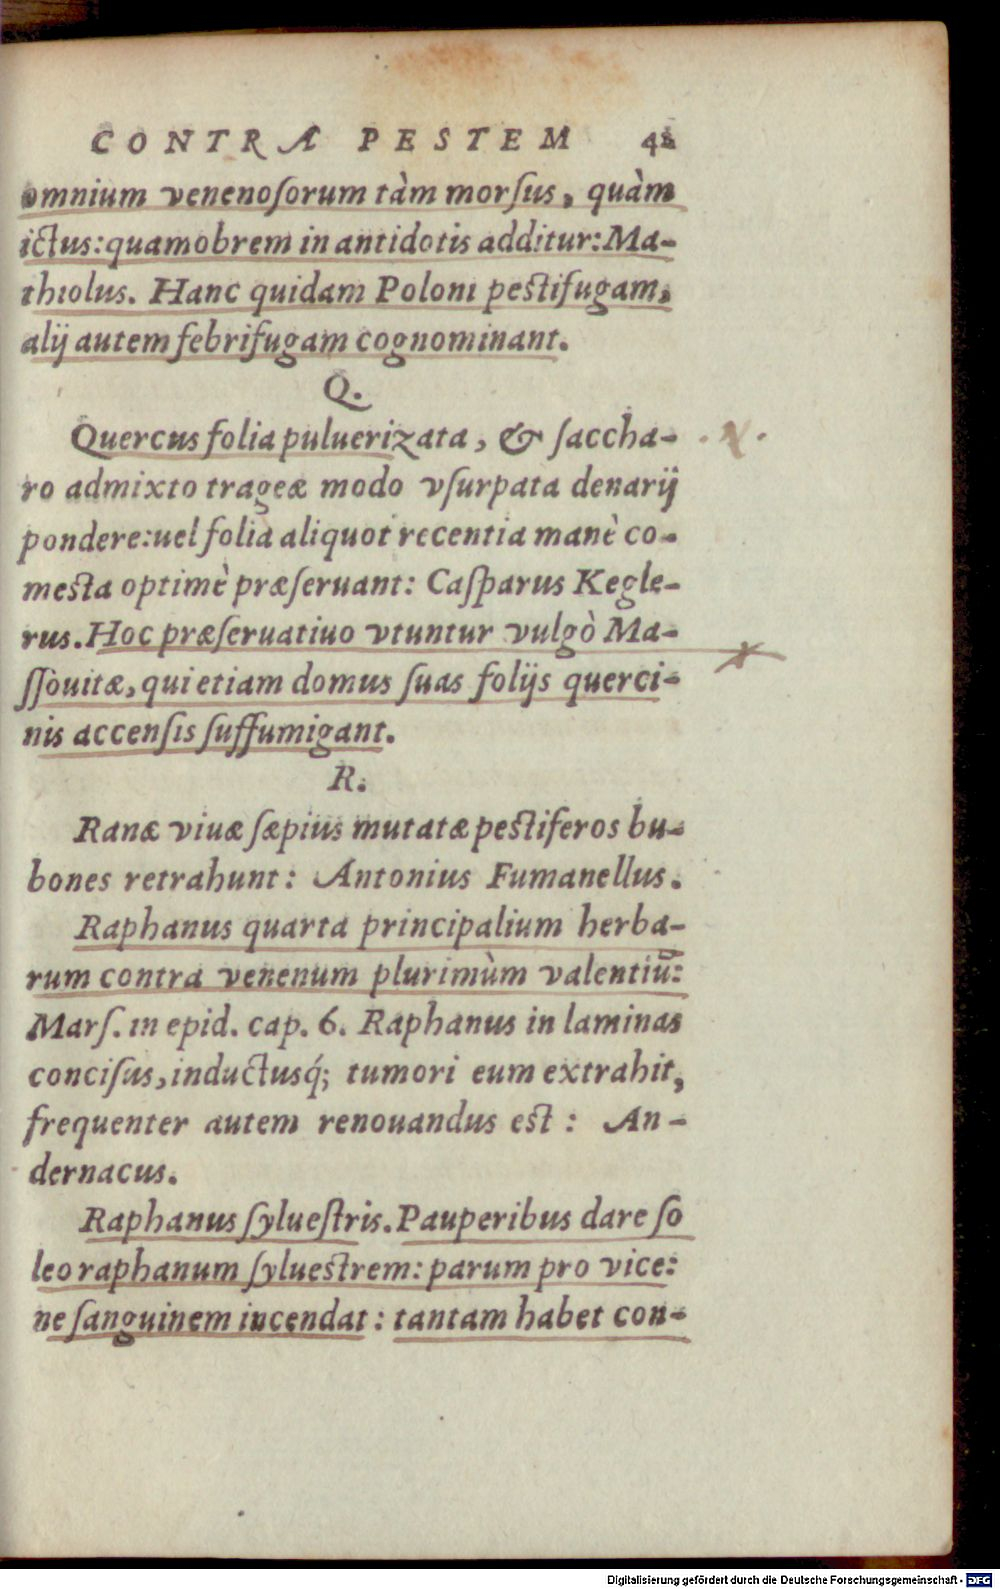 CONTRA PESTEM 42
omnium venenoſorum tàm morſus, quàm
ictus: quamobrem in antidotis additur: Ma-
thiolus. Hanc quidam Poloni peſtifugam,
alij autem febrifugam cognominant.
Q.
Quercus folia puluerizata, & ſaccha-
ro admixto trageæ modo vſurpata denarij
pondere: uel folia aliquot recentia manè co-
meſta optimè præſeruant: Caſparus Kegle-
rus. Hoc præſeruatiuo vtuntur vulgò Ma-
ſſouitæ, qui etiam domus ſuas folijs querci-
nis accenſis ſuffumigant.
R.
Ranæ viuæ ſæpius mutatæ peſtiferos bu-
bones retrahunt: Antonius Fumanellus.
Raphanus quarta principalium herba-
rum contra venenum plurimùm valentiũ:
Marſ. in epid. cap. 6. Raphanus in laminas
conciſus, inductusq́; tumori eum extrahit,
frequenter autem renouandus eſt: An-
dernacus.
Raphanus ſylueſtris. Pauperibus dare ſo
leo raphanum ſylueſtrem: parum pro vice:
ne ſanguinem incendat: tantam habet con-
Digitalisierung gefördert durch die Deutsche Forschungsgemeinschaft - DFG